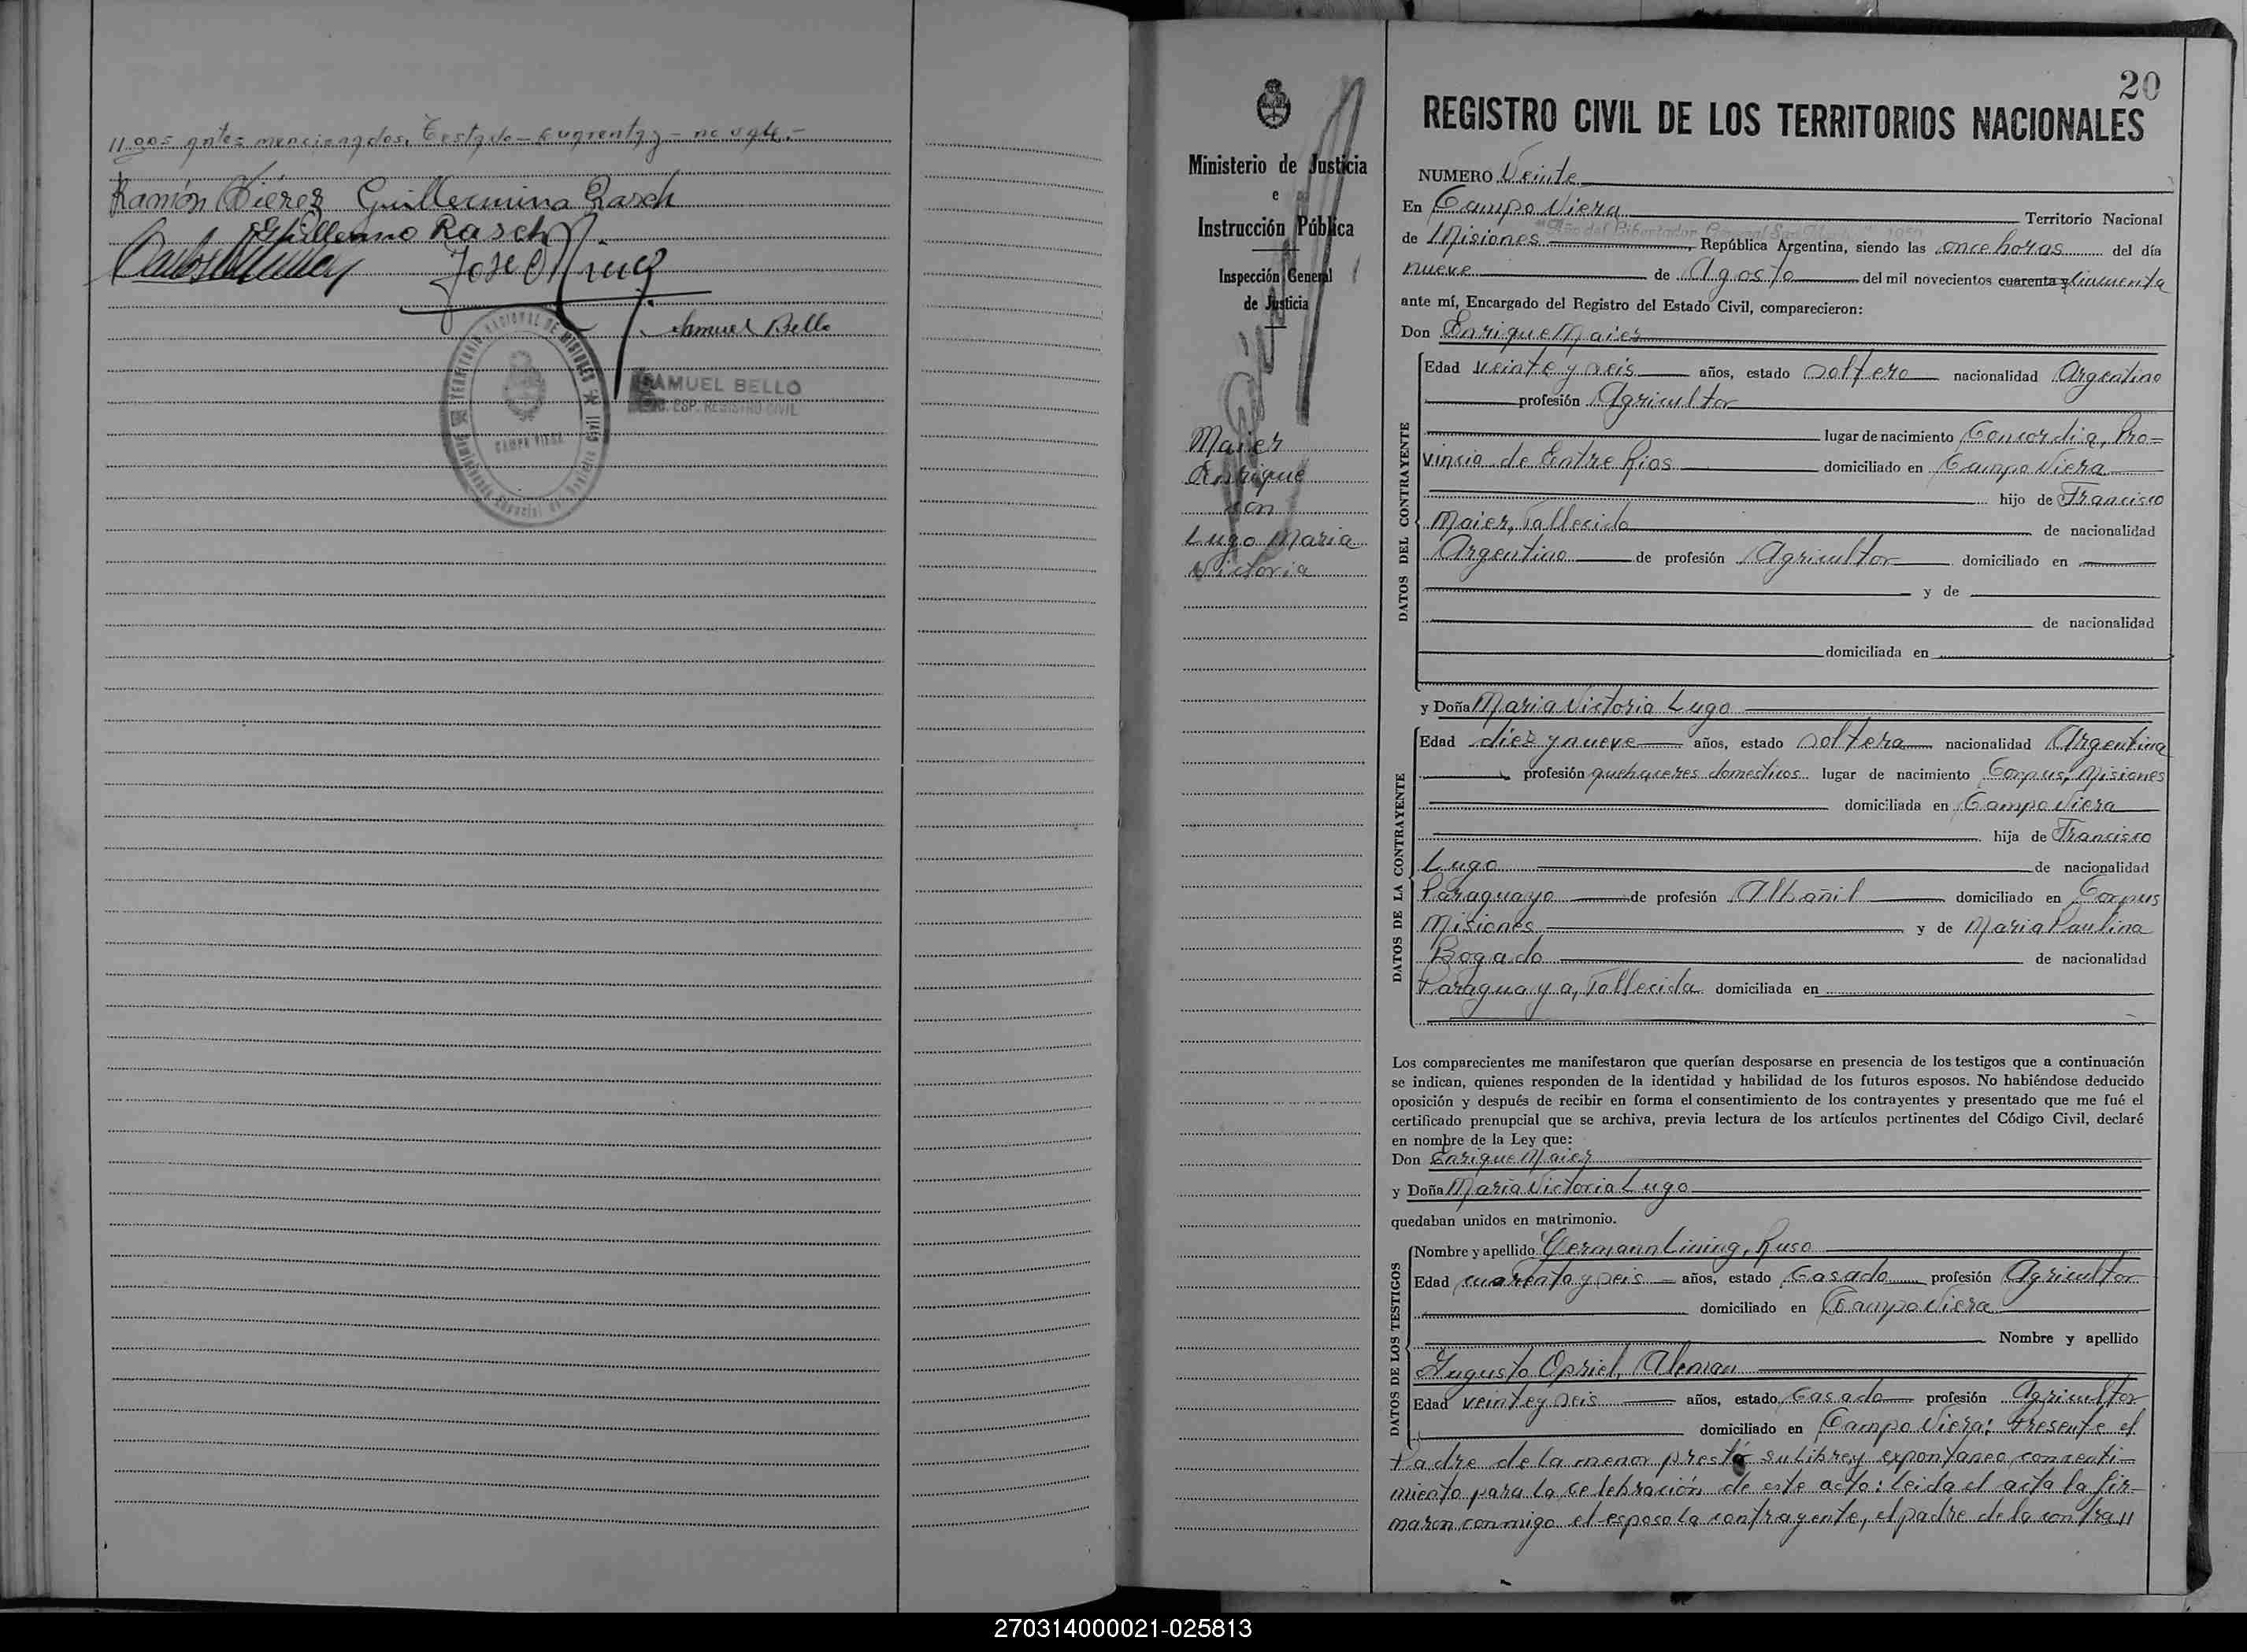 antes mencionados. Testado - cuarenta y - no vale.-
Ramón Guillermina Rasch
Guillermo Rasch
José
Samuel Bello
TERRITORIO NACIONAL DE MISIONES
CAMPO VIERA
SAMUEL BELLO
ESP. REGISTRO CIVIL
Ministerio de Justicia
e
Instrucción Pública
Inspección General
de Justicia
Maier
Enrique
con
Lugo Maria
Victoria
20
REGISTRO CIVIL DE LOS TERRITORIOS NACIONALES
NUMERO Veinte
En Campo Viera Territorio Nacional
"Año del Libertador General San Martín" 1950
de Misiones, República Argentina, siendo las once horas del día
nueve de Agosto del mil novecientos cuarenta y cincuenta
ante mí, Encargado del Registro del Estado Civil, comparecieron:
Don Enrique Maier
DATOS DEL CONTRAYENTE
Edad veinte y seis años, estado soltero nacionalidad Argentino
profesión Agricultor
lugar de nacimiento Concordia, Pro=
vincia de Entre Rios domiciliado en Campo Viera
hijo de Francisco
Maier, Fallecido de nacionalidad
Argentino de profesión Agricultor domiciliado en
y de
de nacionalidad
domiciliada en
y Doña Maria Victoria Lugo
DATOS DE LA CONTRAYENTE
Edad diez y nueve años, estado soltera nacionalidad Argentina
profesión quehaceres domesticos lugar de nacimiento Corpus, Misiones
domiciliada en Campo Viera
hija de Francisco
Lugo de nacionalidad
Paraguayo de profesión Albañil domiciliado en Corpus
Misiones y de Maria Paulina
Bogado de nacionalidad
Paraguaya, Fallecida domiciliada en
Los comparecientes me manifestaron que querían desposarse en presencia de los testigos que a continuación
se indican, quienes responden de la identidad y habilidad de los futuros esposos. No habiéndose deducido
oposición y después de recibir en forma el consentimiento de los contrayentes y presentado que me fué el
certificado prenupcial que se archiva, previa lectura de los artículos pertinentes del Código Civil, declaré
en nombre de la Ley que:
Don Enrique Maier
y Doña Maria Victoria Lugo
quedaban unidos en matrimonio.
DATOS DE LOS TESTIGOS
Nombre y apellido Germann Lining, Ruso
Edad cuarenta y seis años, estado Casado profesión Agricultor
domiciliado en Campo Viera
Nombre y apellido
Augusto Opriel, Aleman
Edad veinte y seis años, estado Casado profesión Agricultor
domiciliado en Campo Viera: Presente el
Padre de la menor prestó su libre y expontaneo consenti-
miento para la celebración de este acto: leida el acta la fir-
maron conmigo el esposo la contrayente, el padre de la contra//
270314000021-025813